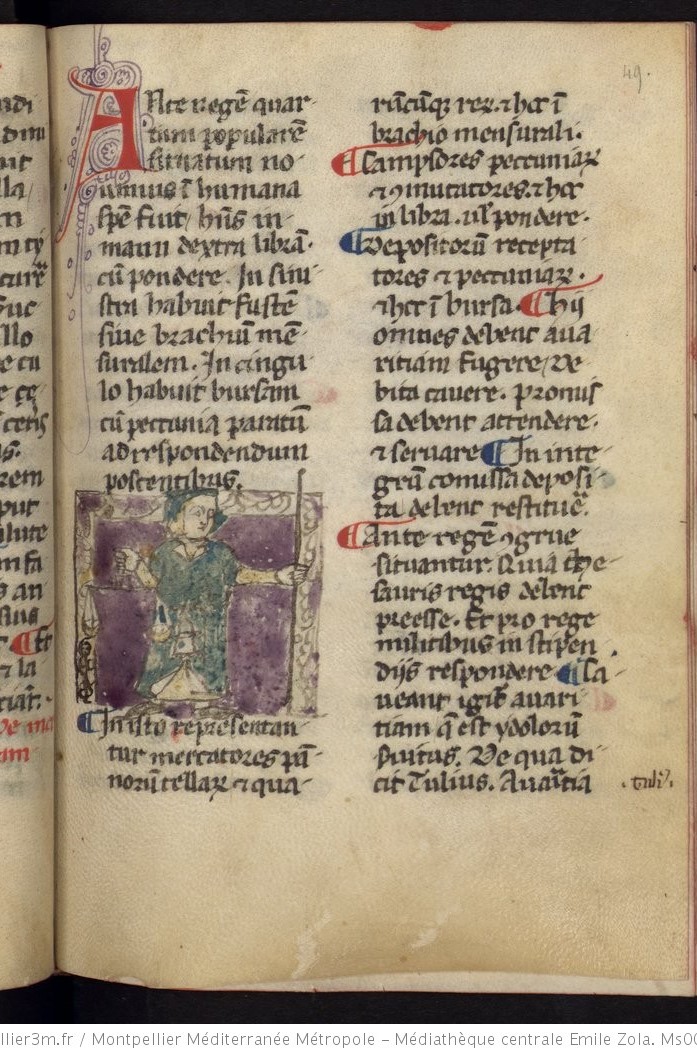 49.
Ante regē quar-
tum popularē
situatum no-
uimus ī humana
spē fuit / hn̄s in
manu dextra librā.
cū pondere. In sini-
stra habuit fustē
siue brachiū mē-
suralem. In cingu-
lo habuit bursam
cū peccunia paratū
ad respondendum
poscentibus.
¶ In isto representan-
tur mercatores pā-
norū tellaꝝ ⁊ qua-
rūcūqꝫ reꝝ. ⁊ hec ī
brachio mensurali.
¶ Campsores peccuniaꝝ
⁊ ꝯmutatores. ⁊ hec
in libra. ul' pondere.
¶ Depositorū recepta
tores ⁊ peccuniaꝝ.
⁊ hec ī bursa. ¶ Hij
omnes debent aua
ritiam fugere / De
bita cauere. promis
sa debent attendere.
⁊ seruare ¶ In inte-
grū comissa deposi-
ta debent restituē.
¶ Ante regē ꝯgrue
situantur. Quia the-
sauris regis debent
preesse. Et pro rege
militibus in stipen
dijs respondere ¶ Ca
ueant igit̄ auari-
tiam q̄ est ydolorū
Seruitus. De qua di-
cit Tulius. Auaritia
. tuli9.
llier3m.fr / Montpellier Méditerranée Métropole – Médiathèque centrale Emile Zola. Ms00